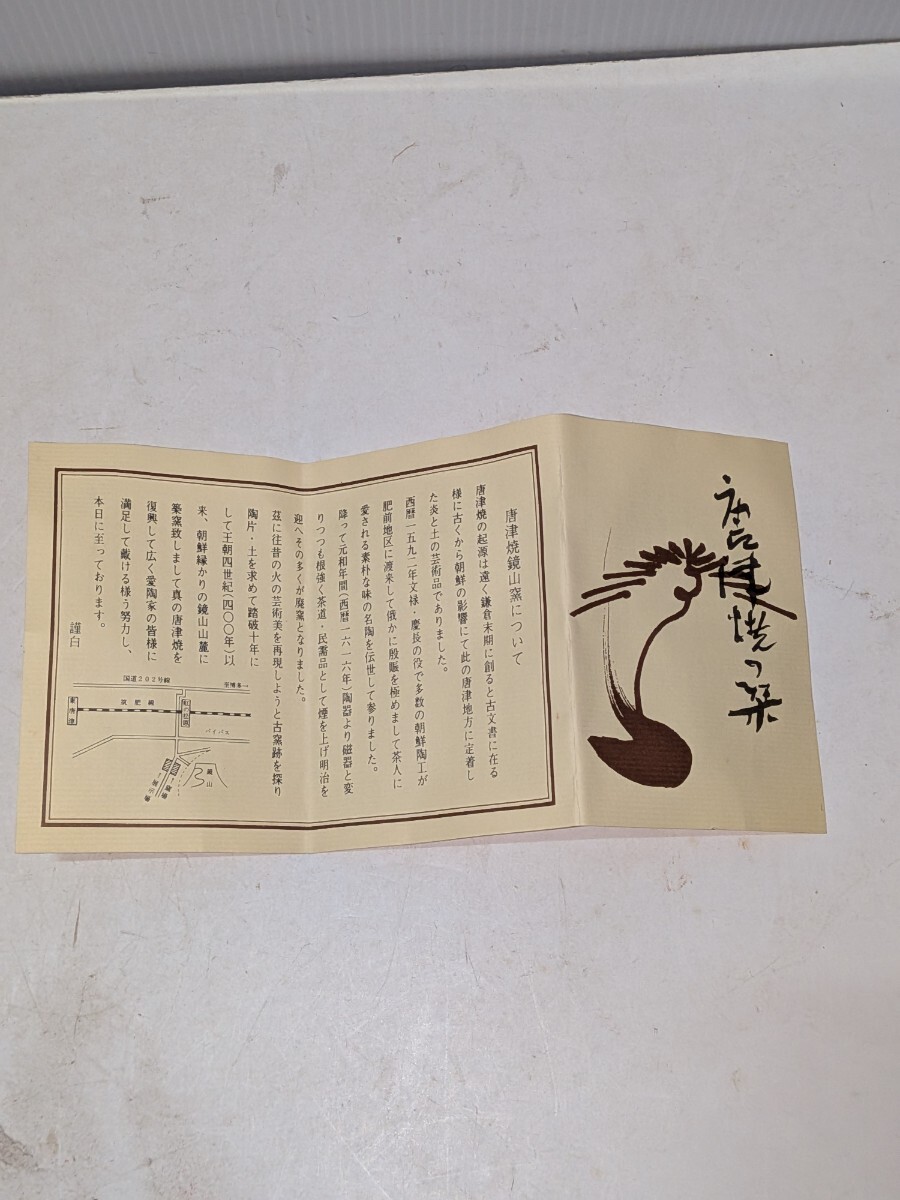 唐津焼の栞
唐津焼鏡山窯について
唐津焼の起源は遠く鎌倉末期に創ると古文書に在る
様に古くから朝鮮の影響にて此の唐津地方に定着し
た炎と土の芸術品でありました。
西暦一五九二年文禄・慶長の役で多数の朝鮮陶工が
肥前地区に渡来して俄かに殷賑を極めまして茶人に
愛される素朴な味の名陶を伝世して参りました。
降って元和年間(西暦一六一六年)陶器より磁器と変
りつつも根強く茶道・民需品として煙を上げ明治を
迎へその多くが廃窯となりました。
茲に往昔の火の芸術美を再現しようと古窯跡を探り
陶片・土を求めて踏破十年に
して王朝四世紀(四〇〇年)以
来、朝鮮縁かりの鏡山山麓に
築窯致しまして真の唐津焼を
復興して広く愛陶家の皆様に
満足して戴ける様う努力し、
本日に至っております。
謹白
国道202号線
至博多→
東唐津
筑肥線
虹の松原
バイパス
鏡山